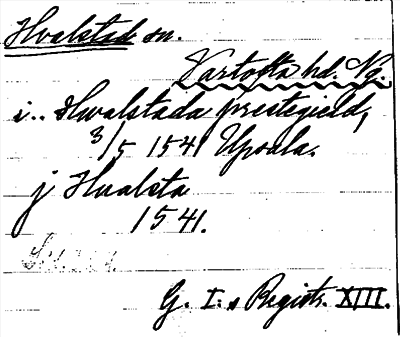 Hvalstad sn.
Vartofta hd. Vg.
i.. Hwalstada prestegield,
3/5 1541 Upsala.
j Hualsta
1541.
G. I:s Registr. XIII.